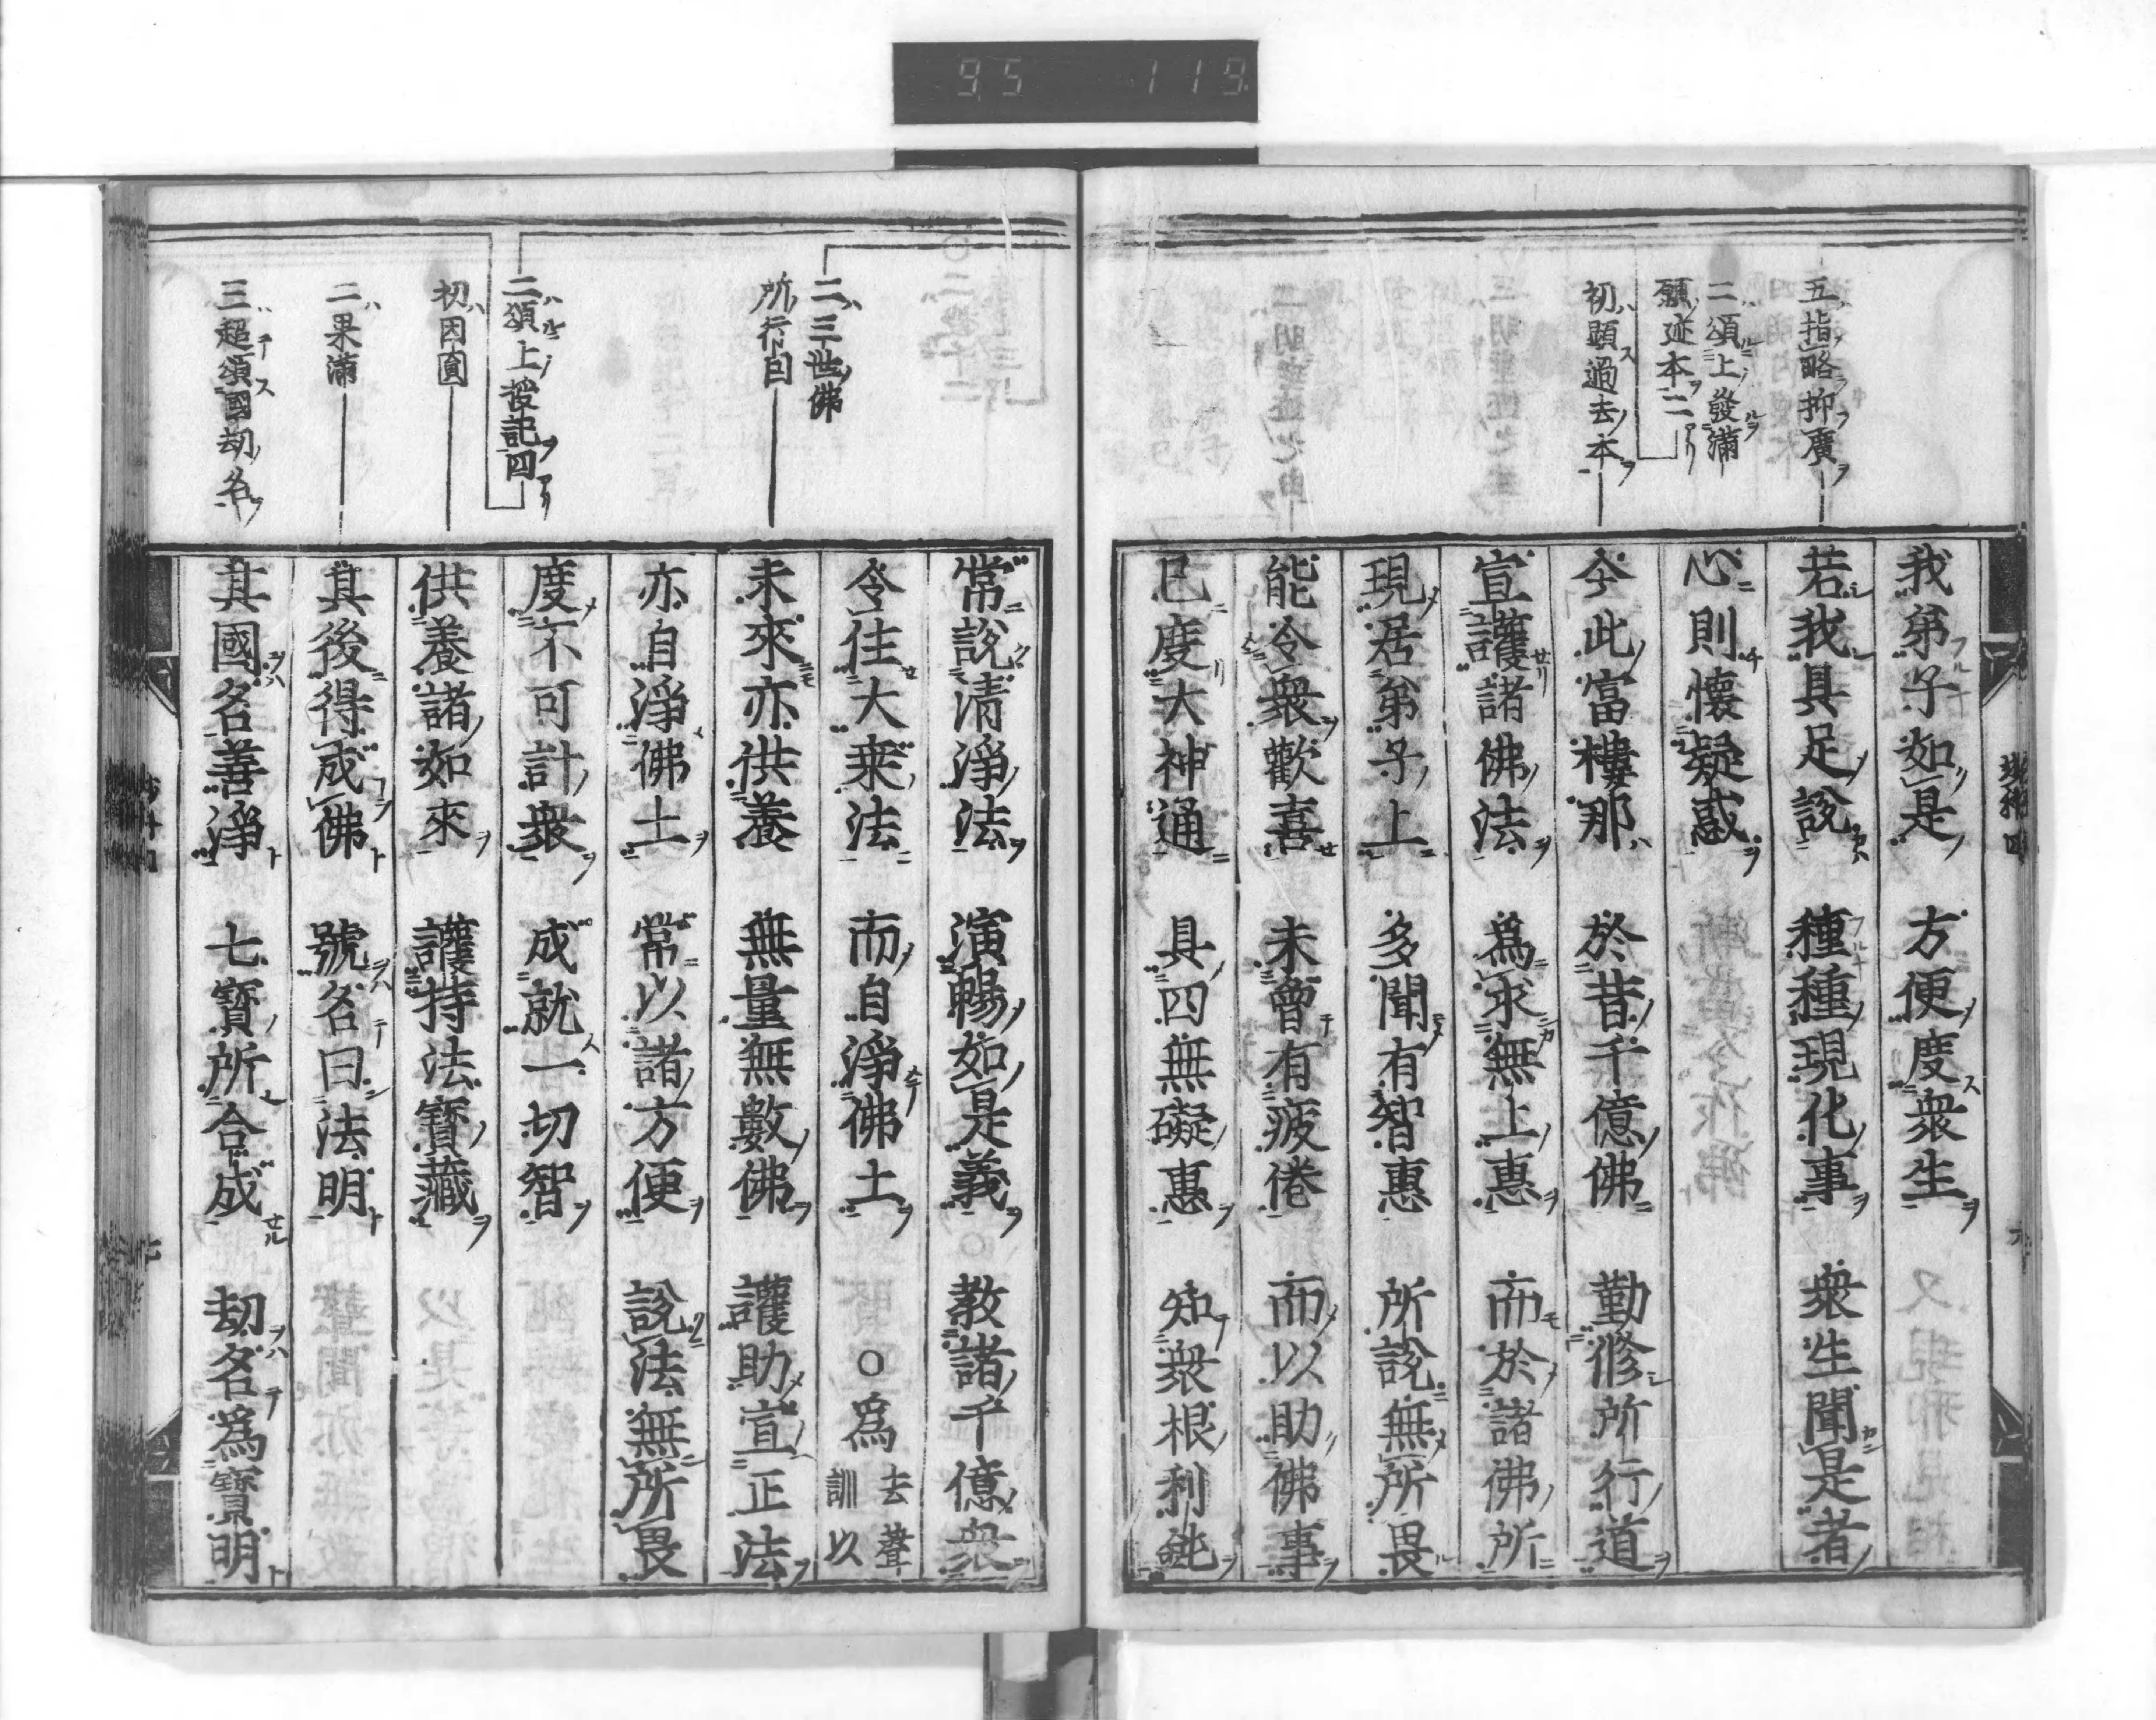 95 119
五指略抑廣
二頌上發滿
願迹本二
初顯過去本
我弟子如是 方便度衆生
若我具足說 種種現化事 衆生聞是者
心則懷疑惑
今此富樓那 於昔千億佛 勤修所行道
宣護諸佛法 爲求無上惠 而於諸佛所
現居弟子上 多聞有智惠 所說無所畏
能令衆歡喜 未曾有疲倦 而以助佛事
已度大神通 具四無礙惠 知衆根利鈍
二三世佛
所行因
二頌上授記四
初因圓
二果滿
三超頌國劫名
常說清淨法 演暢如是義 教諸千億衆
令住大乘法 而自淨佛土 ○爲去聲訓以
未來亦供養 無量無數佛 護助宣正法
亦自淨佛土 常以諸方便 說法無所畏
度不可計衆 成就一切智
供養諸如來 護持法寶藏
其後得成佛 號名曰法明
其國名善淨 七寶所合成 劫名爲寶明